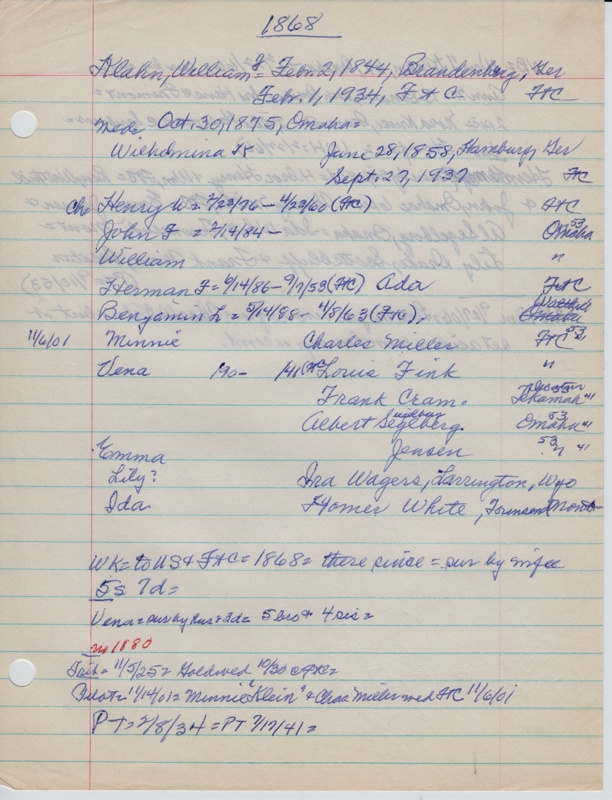 1868
Klahn, William F = Febr. 2, 1844, Brandenberg, Ger
Febr. 1, 1934, Ft C Ft C
Med. Oct. 30, 1875, Omaha =
Wilhelmina K June 28, 1858, Hamburg, Ger
Sept. 27, 1937 Ft C
Ch Henry W = 2/23/76 - 4/23/60 (Ft C) Ft C
John F = 2/14/84 - Omaha 53
William "
Herman F = 6/14/86 - 9/7/53 (Ft C) Ada Ft C
Benjamin L = 5/14/88 - 4/5/63 (Ft C). Omaha
11/6/01 Minnie Charles Miller Ft C 53
Vena 190- 1/41 (Ft C) Louis Fink "
Frank Cram = Tekamah 41
Albert Segeberg Omaha 53 41
Emma Jensen 53 " 41
Lily? Ira Wagers, Torrington, Wyo
Ida Homer White, Mont
WK = to US & Ft C = 1868 = there since = sur by wife
5s 7d =
Vena = sur by hus & 3d = 5 bro & 4 sis =
no 1880
Trib = 11/5/25 = Gold wed 10/30 @ Ft C =
Pilot = 11/14/01 = Minnie "Klein" & Chas Miller wed Ft C 11/6/01
PT = 2/8/34 = PT 7/17/41 =